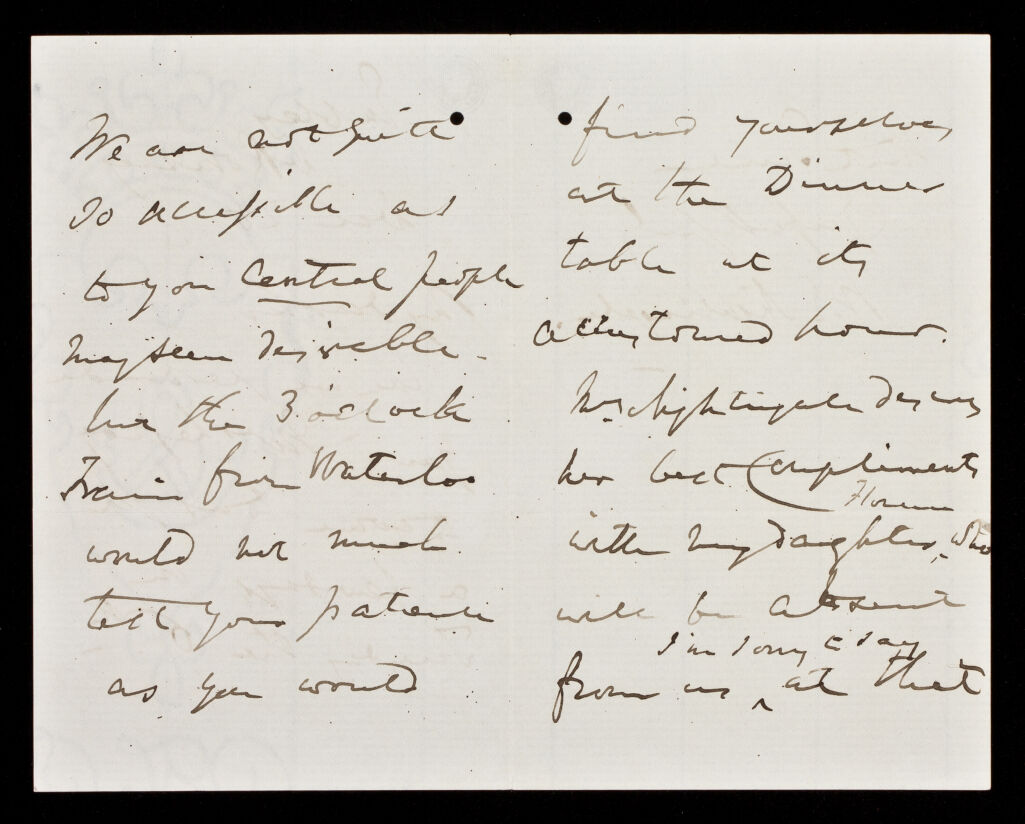 We are not quite
so accessible as
to you central people
may seem desirable -
but the 3 o'clock
Train from Waterloo
would not much
test your patience
as you would
find yourselves
at the Dinner
table at its
accustomed hour.
Mrs Nightingale desires
her best Compliments
Florence
with my daughter, who
will be absent
I'm sorry to say
from us at that